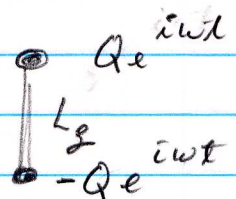 Qe^{iwt}
L_g
-Qe^{iwt}